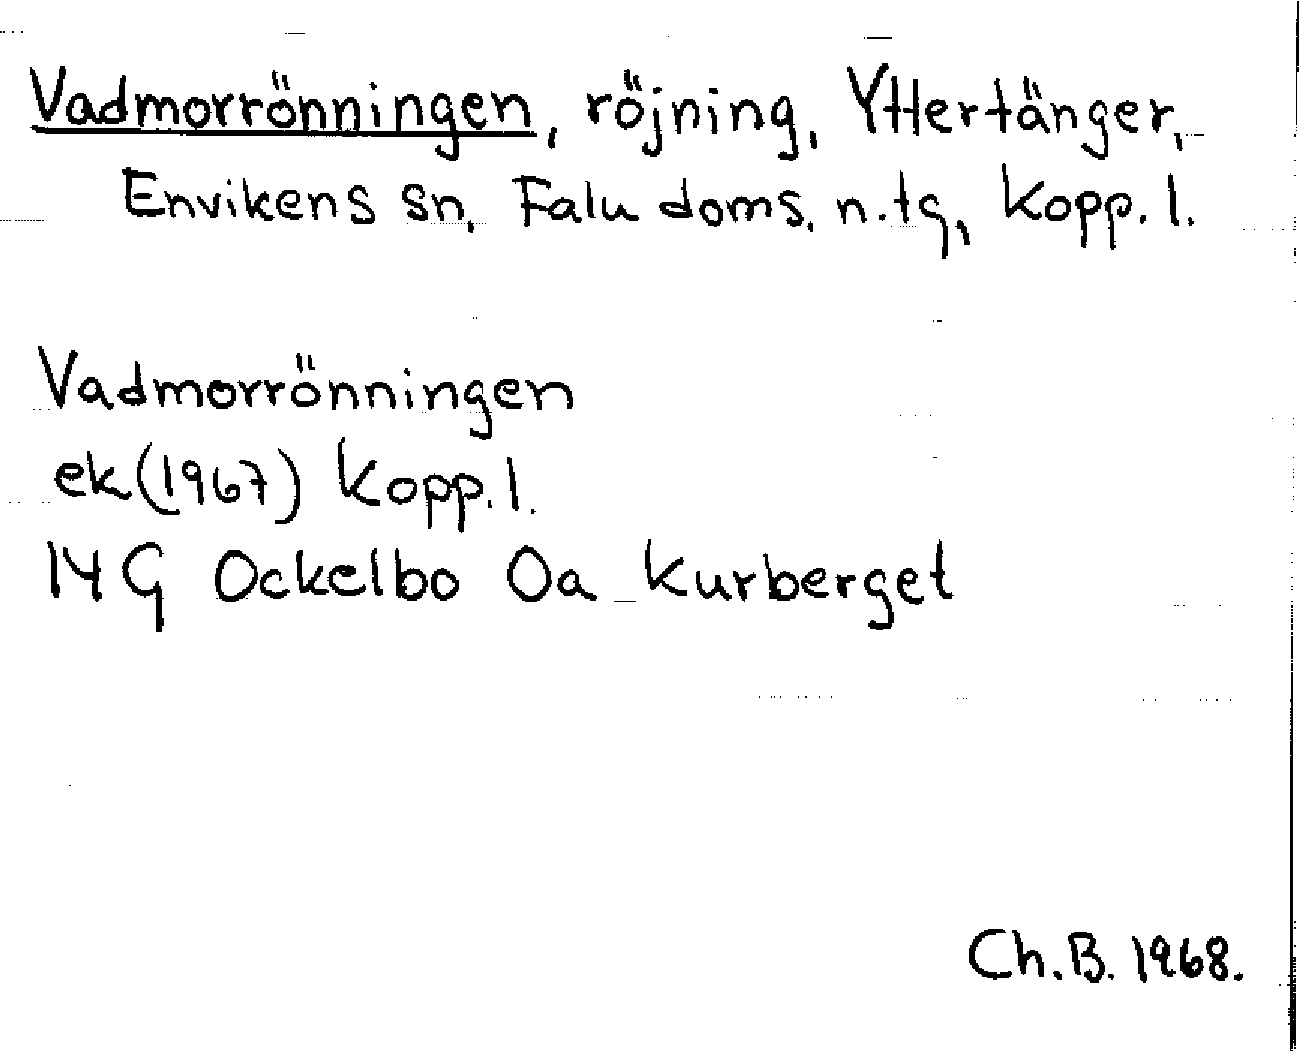 Vadmorrönningen, röjning, Yttertänger,
Envikens sn, Falu doms. n.tg, Kopp. l.
Vadmorrönningen
ek (1967) Kopp. l.
14 G Ockelbo 0a Kurberget
Ch. B. 1968.